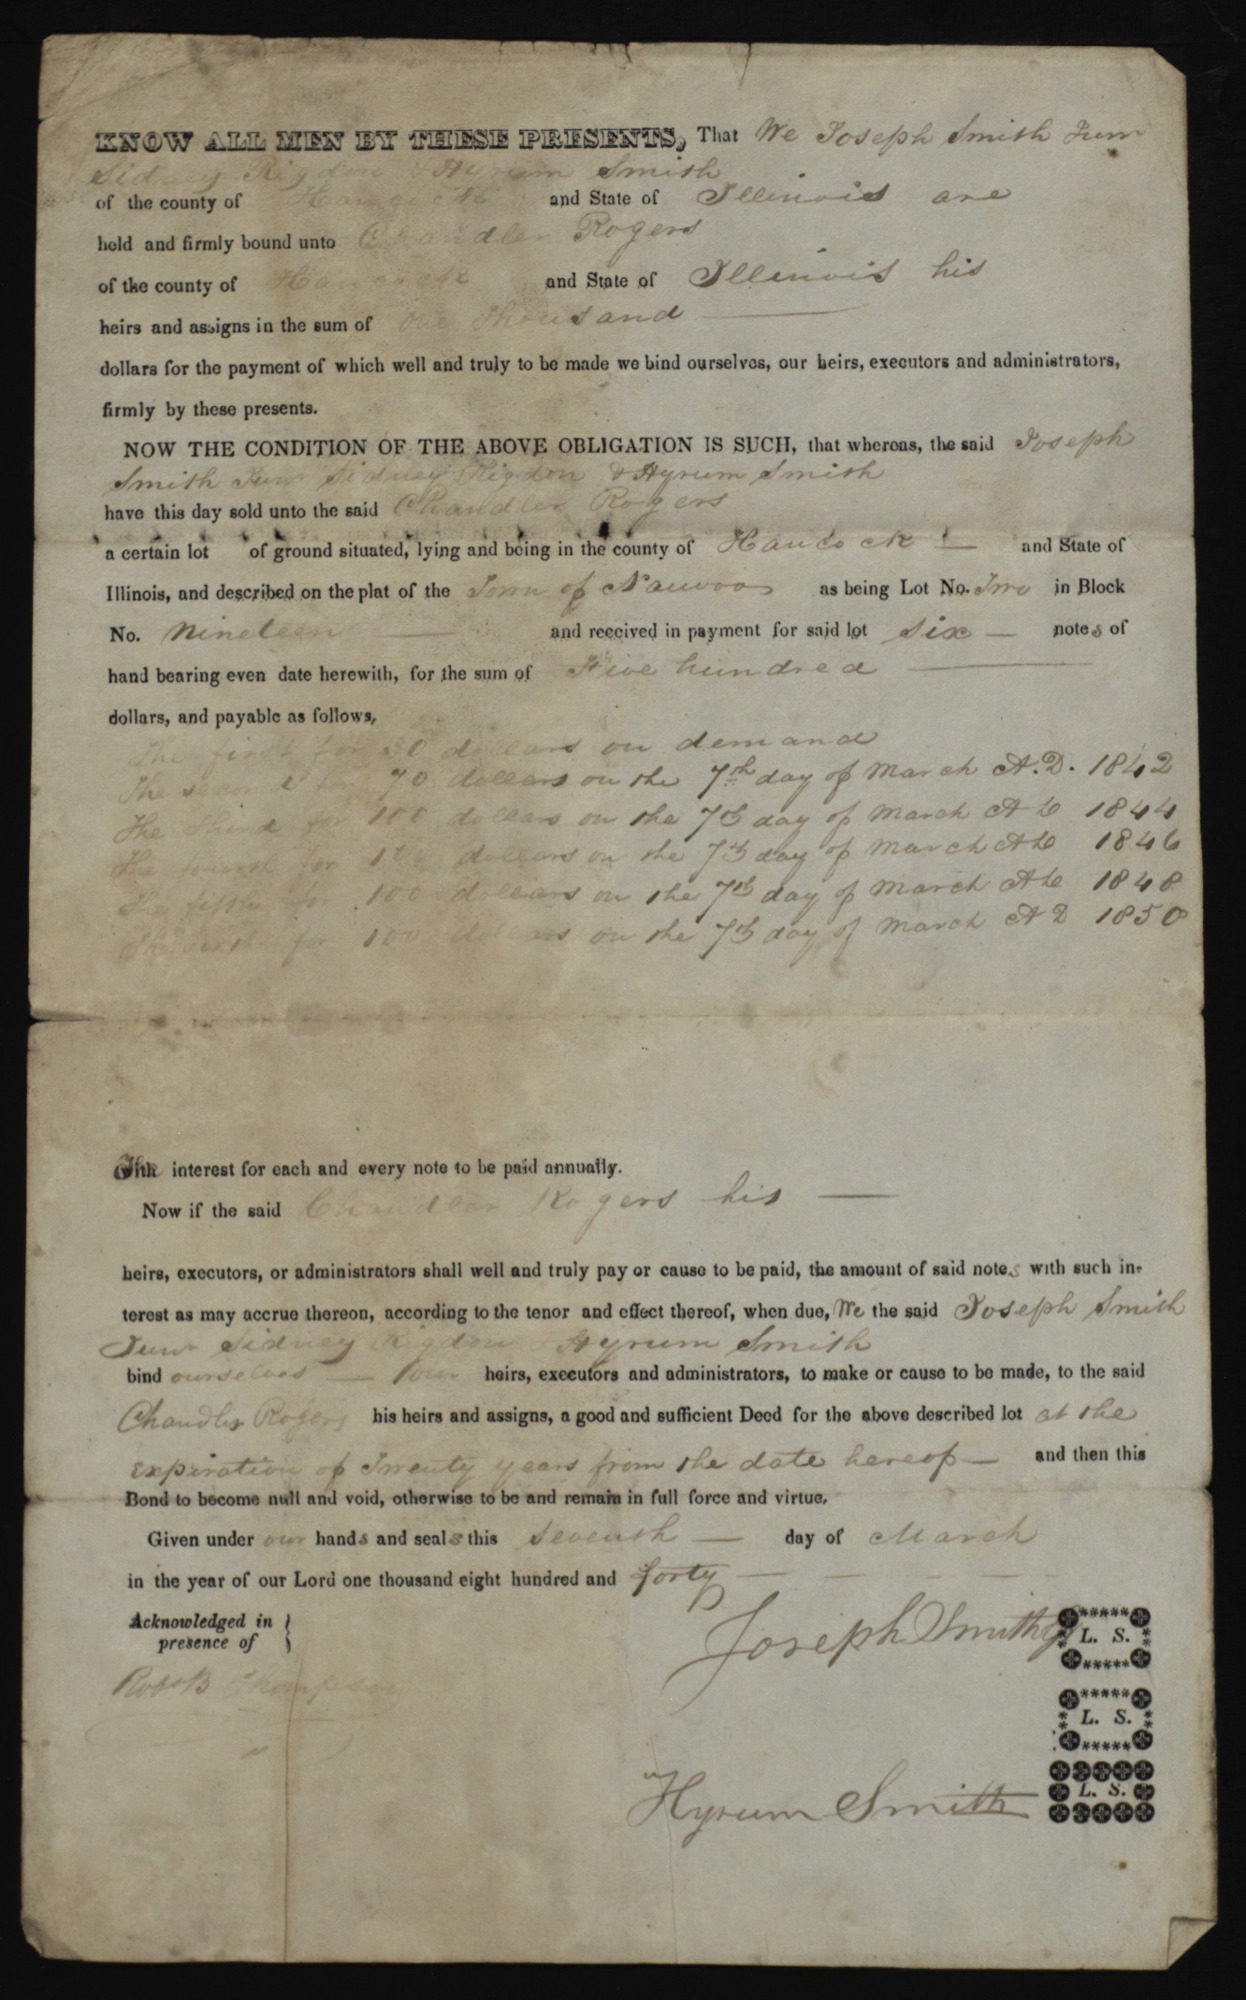 KNOW ALL MEN BY THESE PRESENTS, That We Joseph Smith Junr
Sidney Rigdon & Hyrum Smith
of the county of Hancock and State of Illinois are
held and firmly bound unto Chandler Rogers
of the county of Hancock and State of Illinois his
heirs and assigns in the sum of One Thousand
dollars for the payment of which well and truly to be made we bind ourselves, our heirs, executors and administrators,
firmly by these presents.
NOW THE CONDITION OF THE ABOVE OBLIGATION IS SUCH, that whereas, the said Joseph
Smith Junr Sidney Rigdon & Hyrum Smith
have this day sold unto the said Chandler Rogers
a certain lot of ground situated, lying and being in the county of Hancock and State of
Illinois, and described on the plat of the Town of Nauvoo as being Lot No. Two in Block
No. Nineteen and received in payment for said lot six notes of
hand bearing even date herewith, for the sum of Five hundred
dollars, and payable as follows,
The first for 30 dollars on demand
The second for 70 dollars on the 7th day of March A.D. 1842
The third for 100 dollars on the 7th day of March AD 1844
The fourth for 100 dollars on the 7th day of March AD 1846
The fifth for 100 dollars on the 7th day of March AD 1848
The sixth for 100 dollars on the 7th day of March AD 1850
With interest for each and every note to be paid annually.
Now if the said Chandler Rogers his
heirs, executors, or administrators shall well and truly pay or cause to be paid, the amount of said notes with such in-
terest as may accrue thereon, according to the tenor and effect thereof, when due, We the said Joseph Smith
Junr Sidney Rigdon Hyrum Smith
bind ourselves our heirs, executors and administrators, to make or cause to be made, to the said
Chandler Rogers his heirs and assigns, a good and sufficient Deed for the above described lot at the
expiration of Twenty years from the date hereof and then this
Bond to become null and void, otherwise to be and remain in full force and virtue.
Given under our hands and seals this seventh day of March
in the year of our Lord one thousand eight hundred and forty
Acknowledged in
presence of
Joseph Smith Jr L. S.
Robt B Thompson
L. S.
Hyrum Smith L. S.